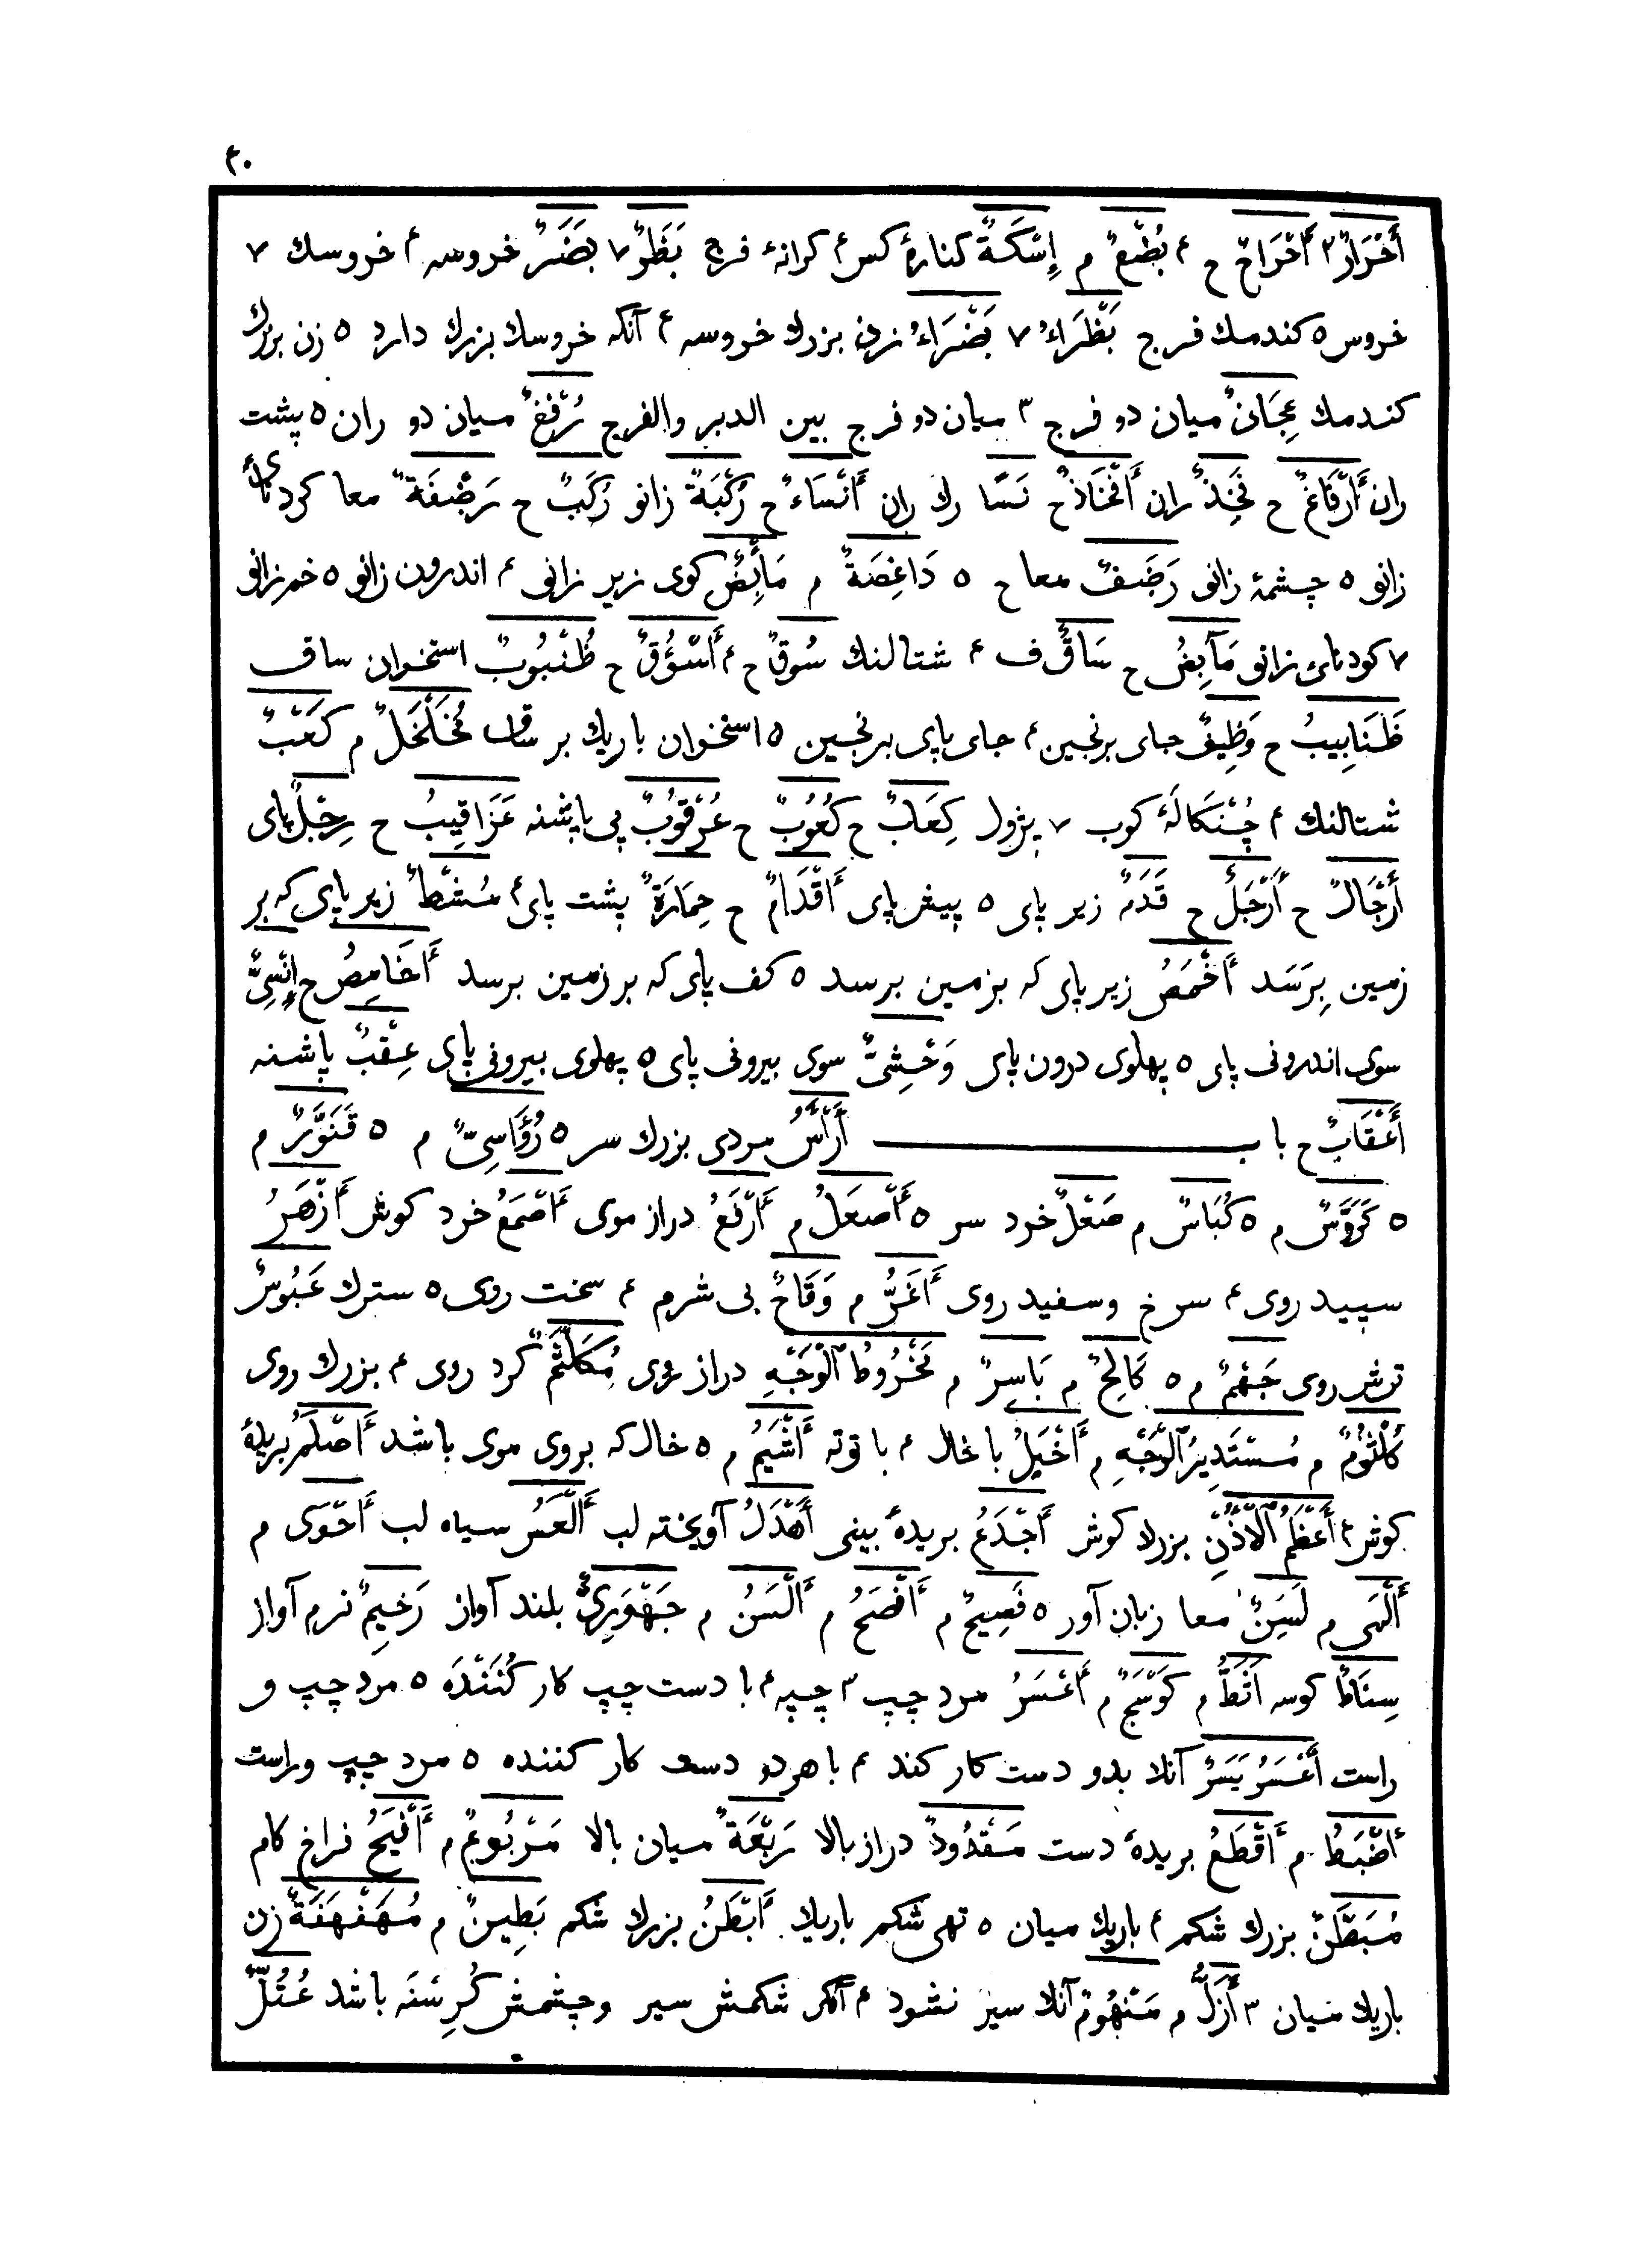 ۴۰
أَحْرَارٌ ۳ أَحْرَاحٌ ح ۴ بُضْعٌ م إِسْكَةٌ کنارهٔ کس ۴ کرانهٔ فرج بَظْرٌ ۷ بَضَرٌ خروسه ۴ خروسك ۷
خروس ٥ کندمك فرج بَظْرَاءُ ۷ بَضْرَاءُ زنی بزرك خروسه ۴ آنکه خروسك بزرك دارد ٥ زن بزرك
کندمك عِجَانٌ میان دو فرج ۳ میان دو فرج بین الدبر والفرج رُفْغٌ میان دو ران ٥ پشت
ران أَرْفَاغٌ ح فَخِذٌ ران أَفْخَاذٌ ح نَسًا رك ران أَنْسَاءٌ ح رُكْبَةٌ زانو رُكَبٌ ح رَضْفَةٌ معا کردنای
زانو ٥ چشمهٔ زانو رَضَفٌ معا ح ٥ دَاغِصَةٌ م مَأْبِضٌ کوی زیر زانی ۴ اندرون زانو ٥ خم زانو
۷ کودنای زانو مَآبِضُ ح سَاقٌ ف ۴ شتالنك سُوقٌ ح ۴ أَسْؤُقٌ ح ظُنْبُوبٌ استخوان ساق
ظَنَابِيبُ ح وَظِيفٌ جای برنجین ۴ جای پای برنجین ٥ استخوان باریك بر ساق مُخَلْخَلٌ م كَعْبٌ
شتالنك ۴ جُنْكَالَهٔ کوب ۷ پژول كِعَابٌ ح كُعُوبٌ ح عُرْقُوبٌ پی پاشنه عَرَاقِيبُ ح رِجْلٌ پای
أَرْجَالٌ ح أَرْجُلٌ ح قَدَمٌ زیر پای ٥ پیش پای أَقْدَامٌ ح حِمَارَةٌ پشت پای ۴ مُشْطٌ زیر پای که بر
زمین بِرَسَد أَخْمَصُ زیر پای که بزمین برسد ٥ کف پای که بر زمین برسد أَخَامِصُ ح إِنْسِيٌّ
سوی اندرونی پای ٥ پهلوی درون پای وَحْشِيٌّ سوی بیرونی پای ٥ پهلوی بیرونی پای عَقِبٌ پاشنه
أَعْقَابٌ ح باب أَرْأَسُ مردی بزرك سر ٥ رُؤَاسِيٌّ م ٥ قَنَوَّرٌ م
٥ كَرَوَّسٌ م ٥ كُبَاسٌ م صَعْلٌ خرد سر ٥ أَصْعَلُ م أَرْفَعُ دراز موی أَصْمَعُ خرد کوش أَزْهَرُ
سپید روی ۴ سرخ وسفید روی أَغَرُّ م وَقَاحٌ بی شرم ۴ سخت روی ٥ سترك عَبُوسٌ
ترش روی جَهْمٌ م ٥ كَالِحٌ م بَاسِرٌ م مَخْرُوطُ الْوَجْهِ دراز روی مُكَلْثَمٌ کرد روی ۴ بزرك روی
كُلْثُومٌ م مُسْتَدِيرُ الْوَجْهِ م أَخْيَلُ با خال ۴ با توته أَشْيَمُ م ٥ خال که بروی موی باشد أَصْلَمُ بریدهٔ
کوش ۴ أَعْظَمُ الْأُذُنِ بزرك کوش أَجْدَعُ بریدهٔ بینی أَهْدَلُ آویخته لب أَلْعَسُ سیاه لب أَحْوَى م
أَلْمَى م لَسِنٌ معا زبان آور ٥ فَصِيحٌ م أَفْصَحُ م أَلْسَنُ م جَهْوَرِيٌّ بلند آواز رَخِيمٌ نرم آواز
سِنَاطٌ کوسه أَثَطُّ م كَوْسَجٌ م أَعْسَرُ مرد چپ ۳ چپه ۴ با دست چپ کار کُنَنْدَه ٥ مرد چپ و
راست أَعْسَرُ يَسَرٌ آنك بدو دست کار کند ۴ با هر دو دست کار کننده ٥ مرد چپ وراست
أَضْبَطُ م أَقْطَعُ بریدهٔ دست مَقْدُودٌ دراز بالا رَبْعَةٌ میان بالا مَرْبُوعٌ م أَفْيَحُ فراخ کام
مُبَطَّنٌ بزرك شکم ۴ باریك میان ٥ تهی شکم باریك أَبْطَنُ بزرك شکم بَطِينٌ م مُهَفْهَفَةٌ زن
باریك میان ۳ أَزَلُّ م مَنْهُومٌ آنك سیر نشود ۴ آنکر شکمش سیر وچشمش کُرِسْنَه باشد عُتُلٌّ